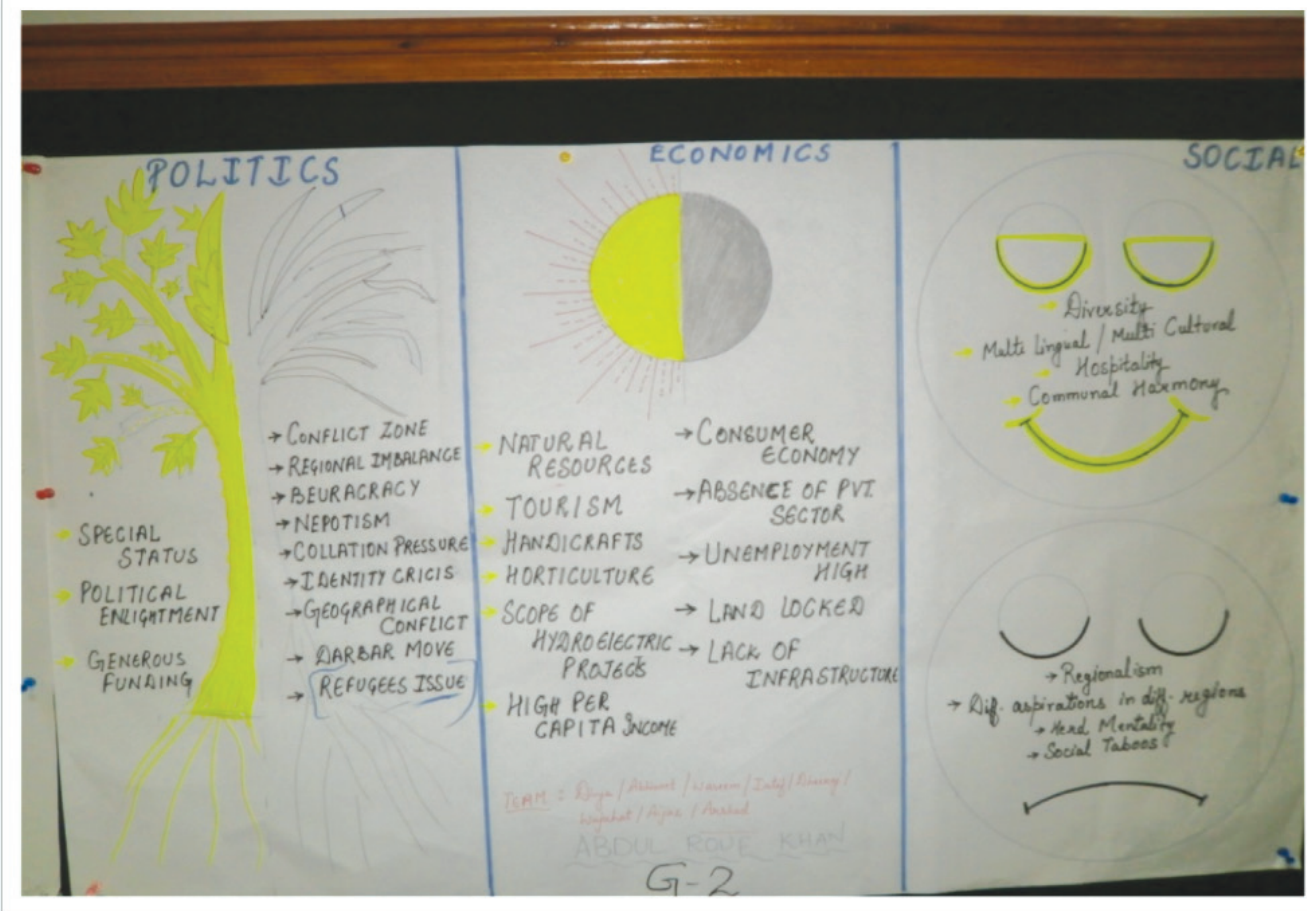 POLITICS
SPECIAL
STATUS
POLITICAL
ENLIGHTMENT
GENEROUS
FUNDING
→ CONFLICT ZONE
→ REGIONAL IMBALANCE
→ BEURACRACY
→ NEPOTISM
→ COLLATION PRESSURE
→ IDENTITY CRICIS
→ GEOGRAPHICAL
CONFLICT
→ DARBAR MOVE
→ REFUGEES ISSUE
ECONOMICS
→ NATURAL
RESOURCES
→ TOURISM
→ HANDICRAFTS
→ HORTICULTURE
→ SCOPE OF
HYDROELECTRIC
PROJECTS
→ HIGH PER
CAPITA INCOME
→ CONSUMER
ECONOMY
→ ABSENCE OF PVT.
SECTOR
→ UNEMPLOYMENT
HIGH
→ LAND LOCKED
→ LACK OF
INFRASTRUCTURE
TEAM : / / / /
Wajahat / / Arshad
ABDUL ROUF KHAN
G-2
SOCIAL
→ Diversity
→ Multi Lingual / Multi Cultural
→ Hospitality
→ Communal Harmony
→ Regionalism
→ Dif. aspirations in diff. regions
→ Herd Mentality
→ Social Taboos